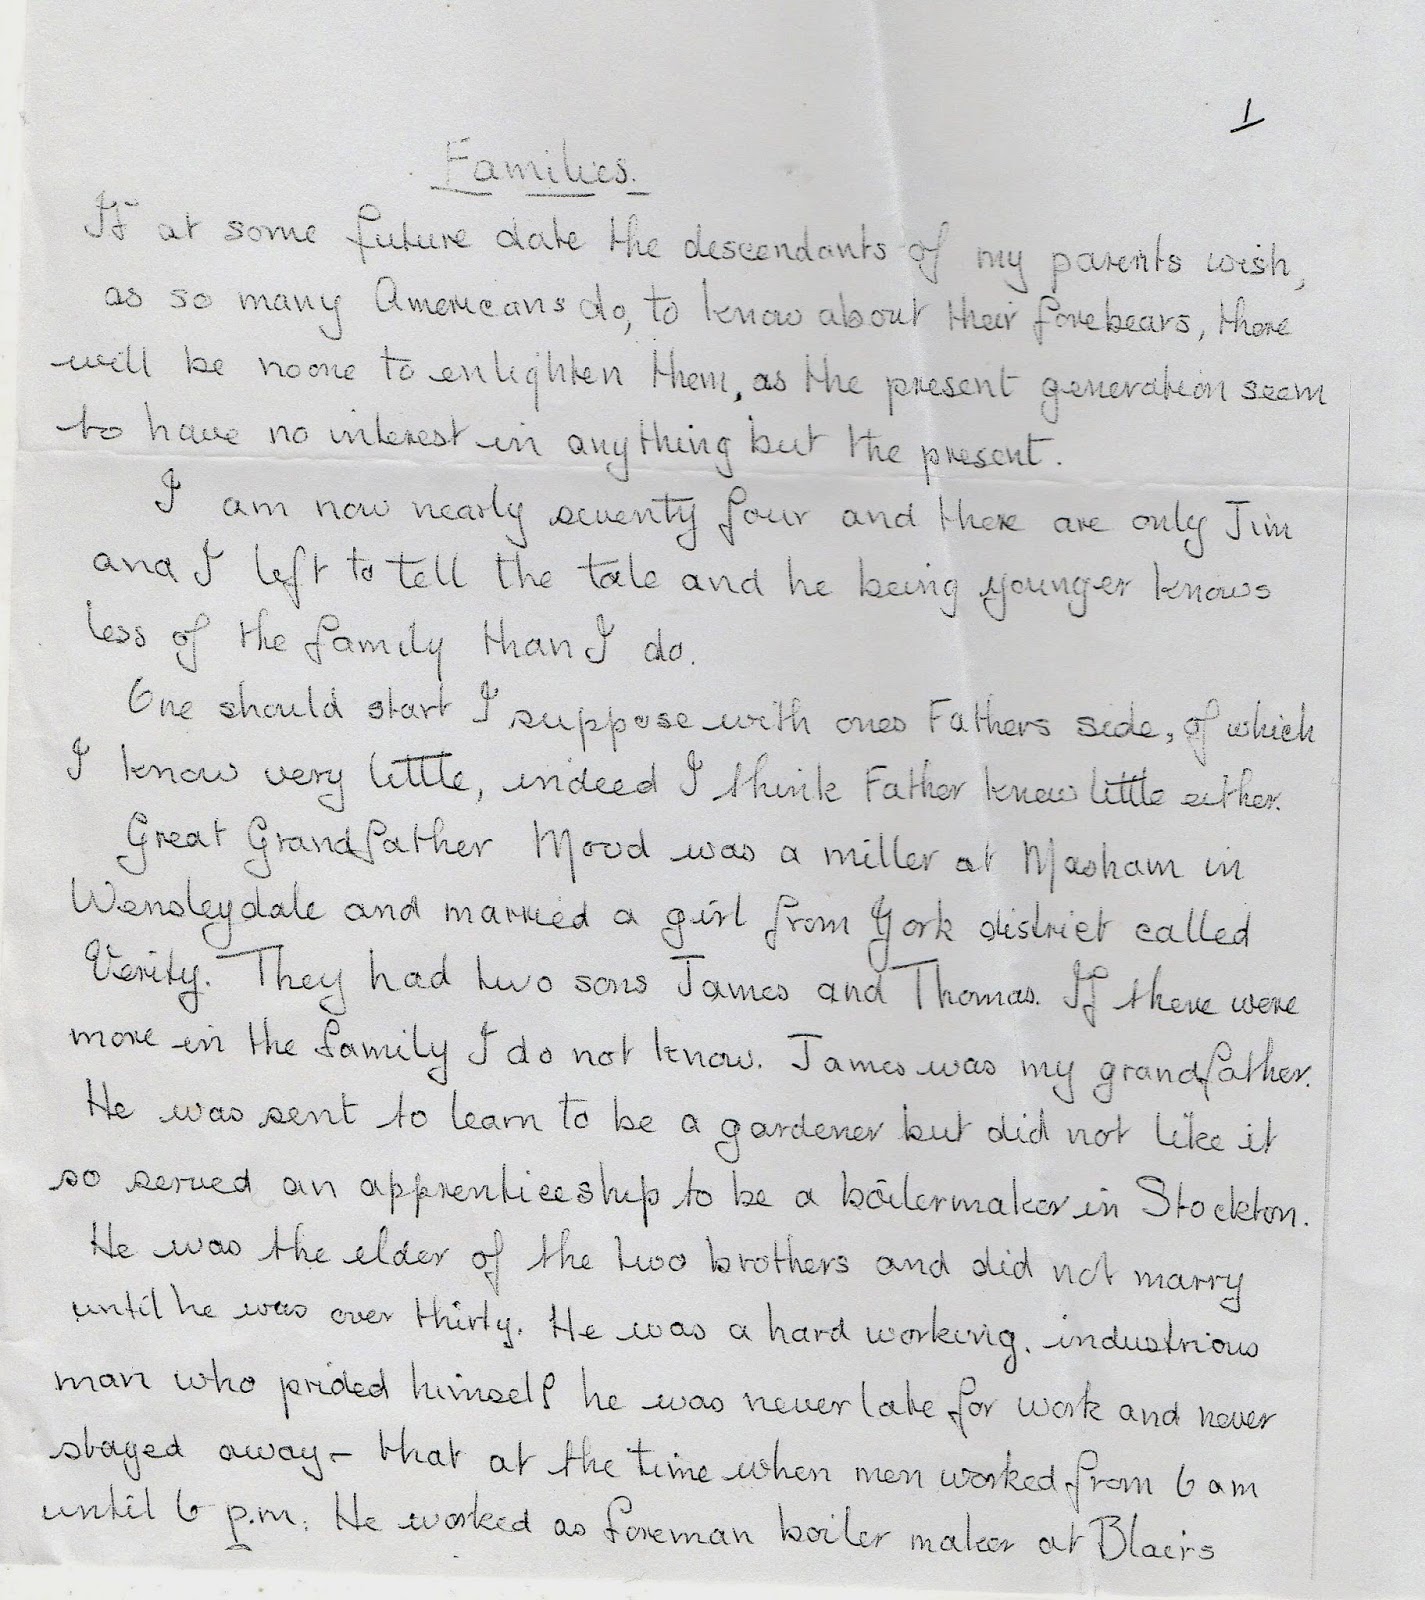 1
Families.
If at some future date the descendants of my parents wish,
as so many Americans do, to know about their forebears, there
will be noone to enlighten them, as the present generation seem
to have no interest in anything but the present.
I am now nearly seventy four and there are only Jim
and I left to tell the tale and he being younger knows
less of the family than I do.
One should start I suppose with ones Fathers side, of which
I know very little, indeed I think Father knew little either.
Great Grandfather Mood was a miller at Masham in
Wensleydale and married a girl from York district called
Verity. They had two sons James and Thomas. If there were
more in the family I do not know. James was my grandfather.
He was sent to learn to be a gardener but did not like it
so served an apprenticeship to be a boilermaker in Stockton.
He was the elder of the two brothers and did not marry
until he was over thirty. He was a hard working, industrious
man who prided himself he was never late for work and never
stayed away - that at the time when men worked from 6 am
until 6 p.m. He worked as foreman boiler maker at Blairs